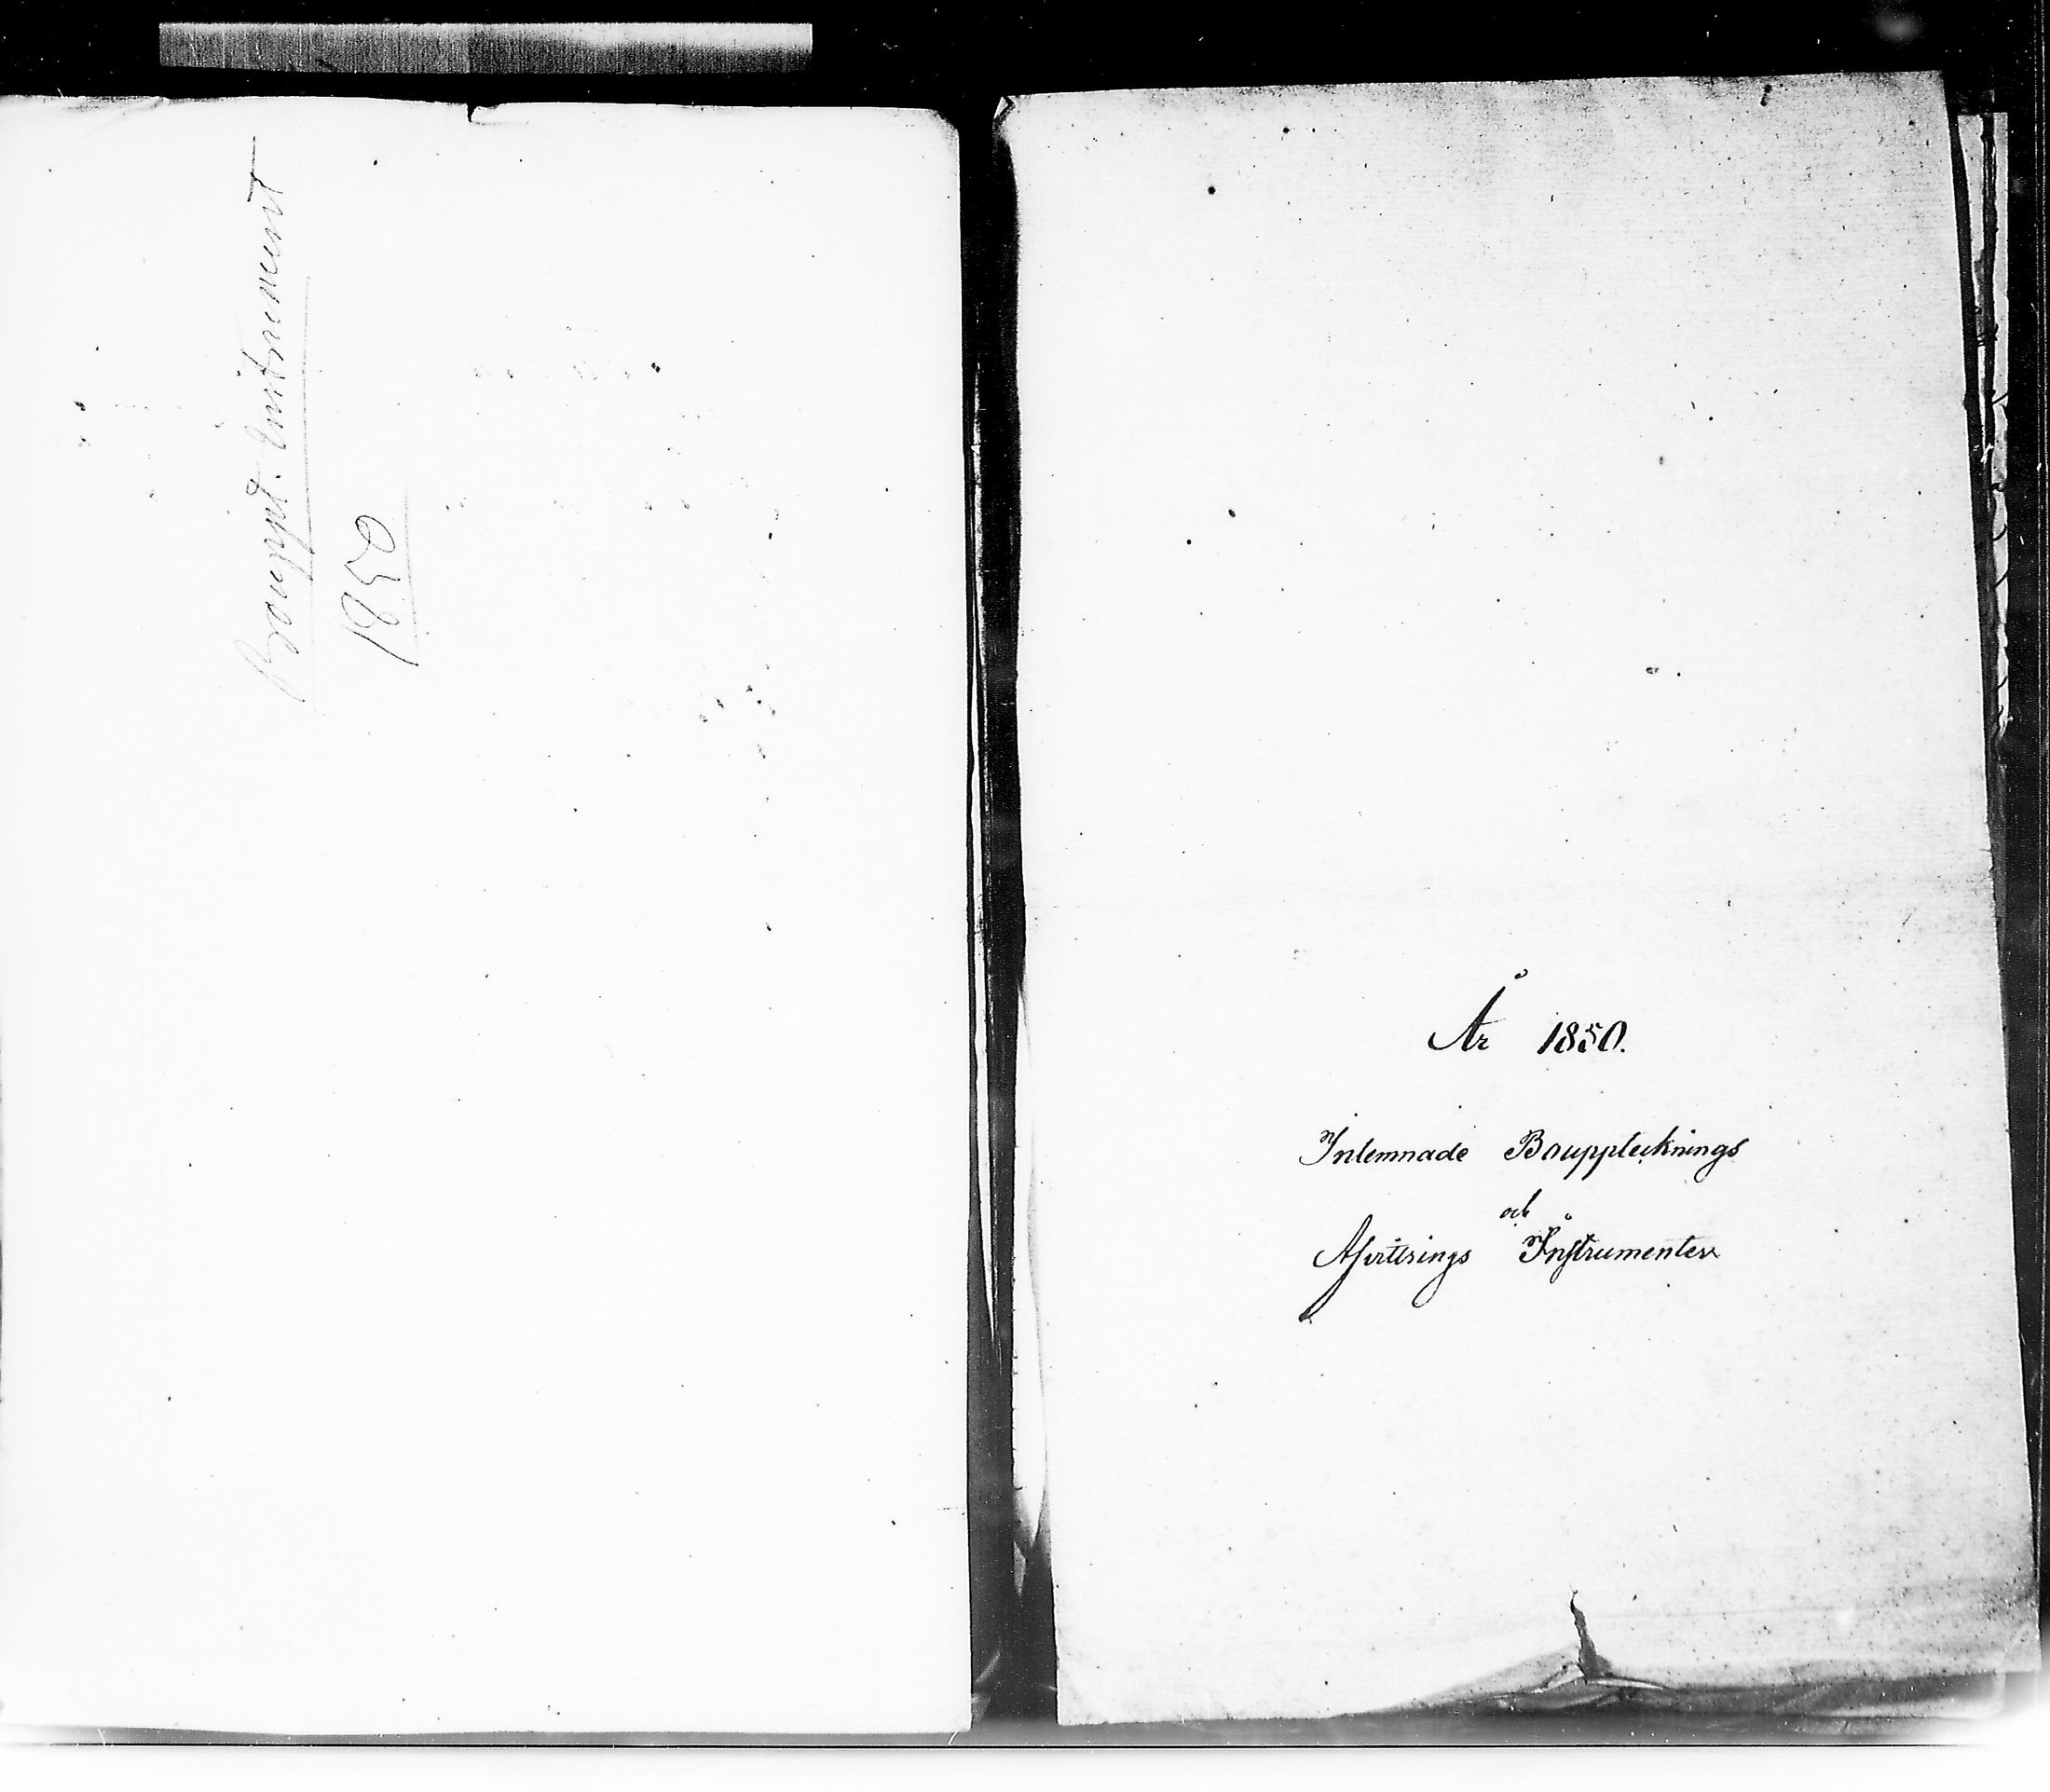 Bouppt. Instrument
1850
År 1850.
Inlemnade Bouppteknings
och
Afvittrings Instrumenter